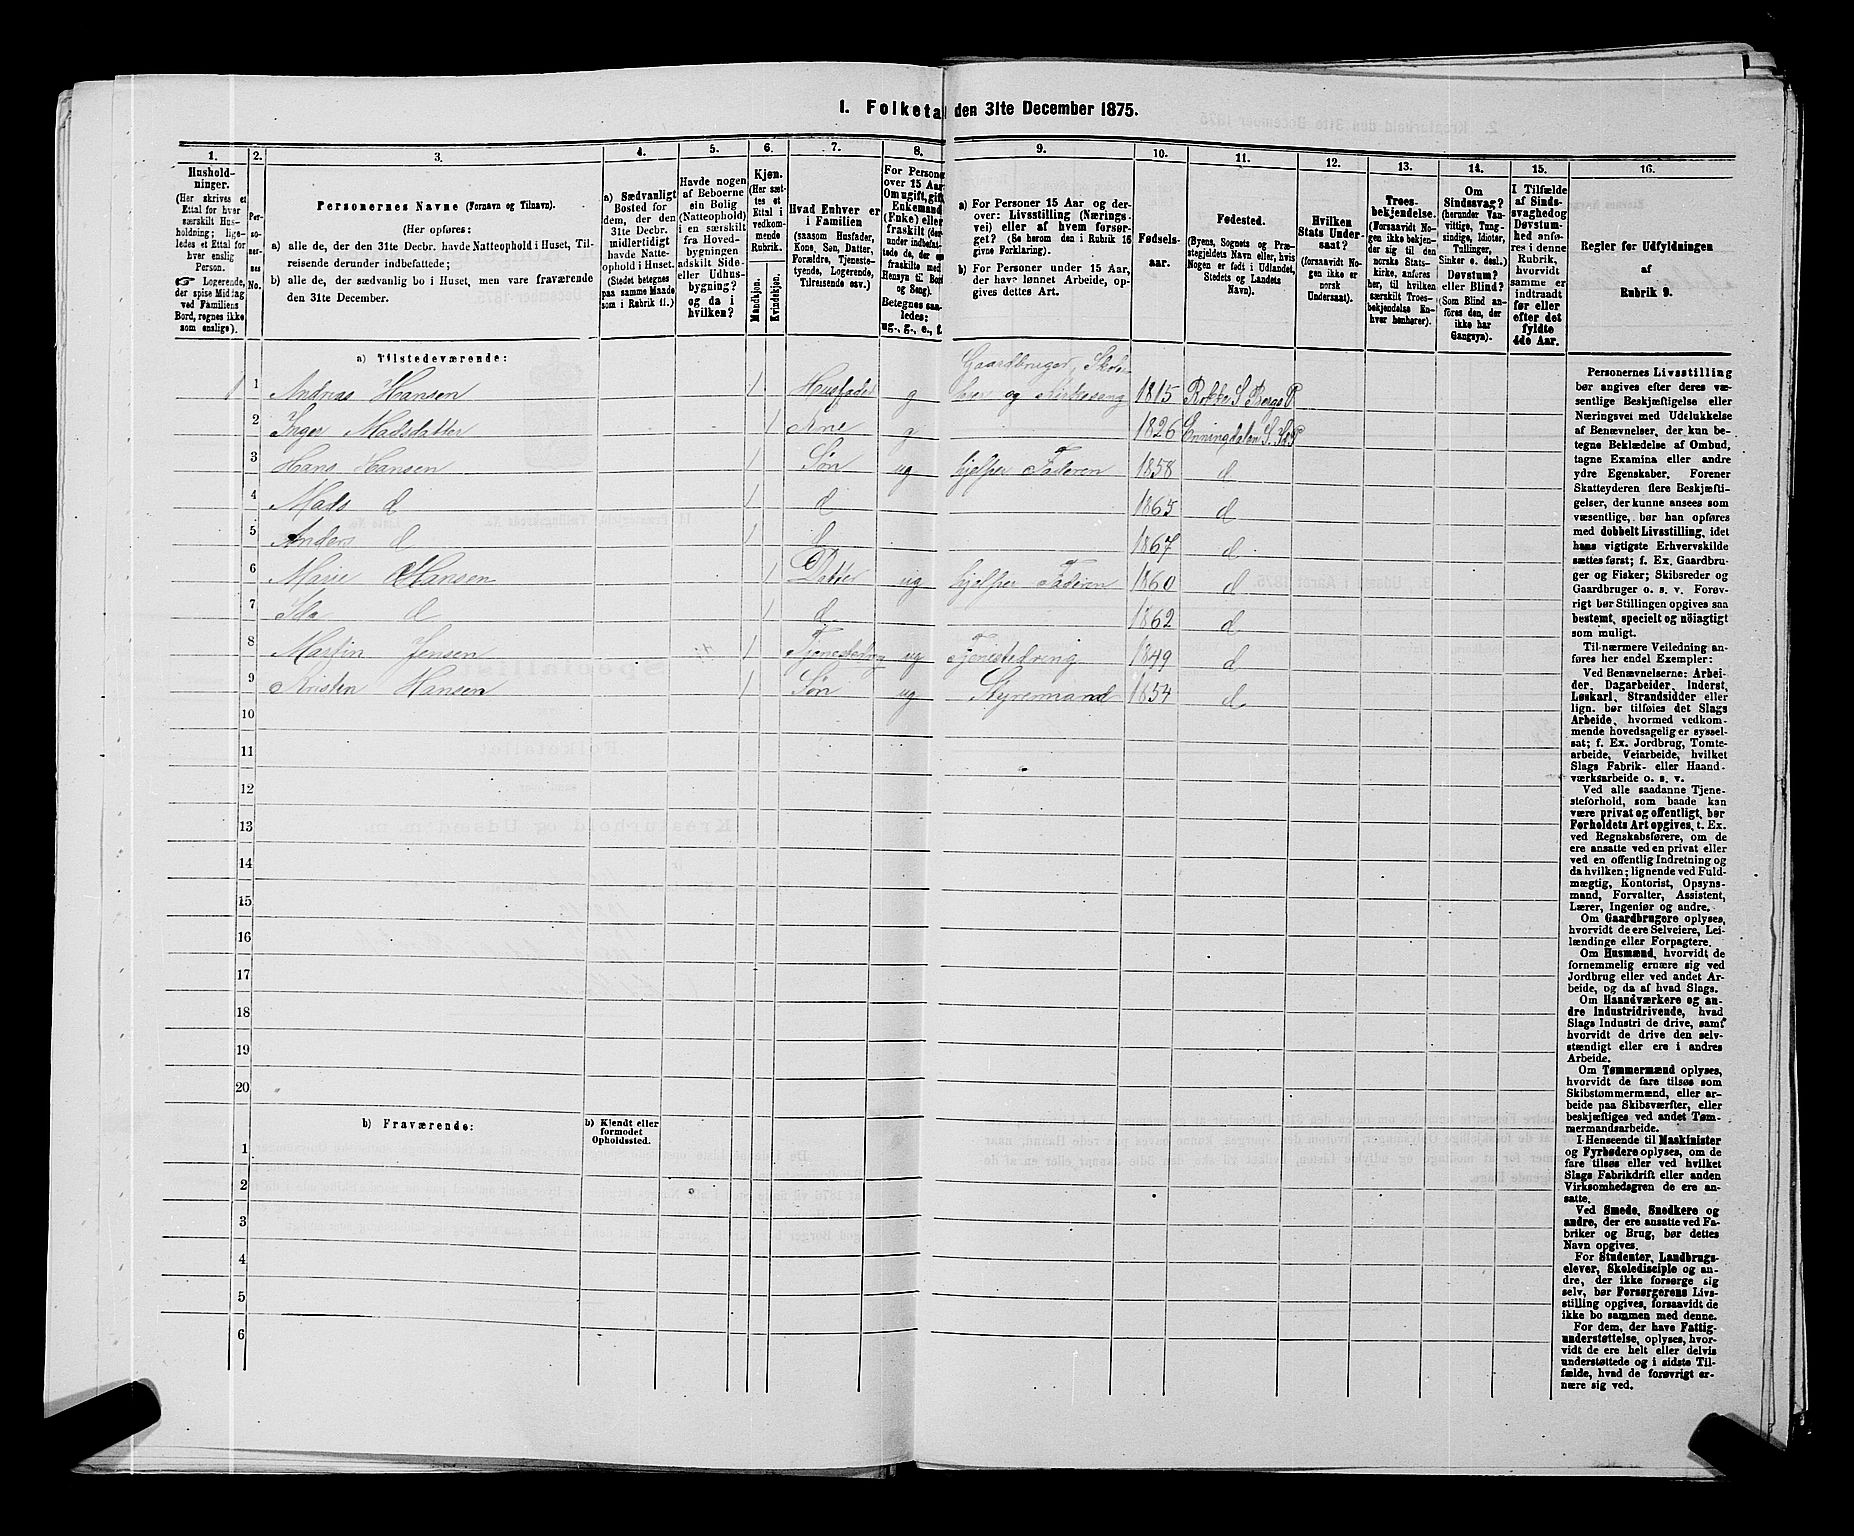 I. Folketa den 31te December 1875.
1. 2. 3. 4. 5. 6. 7. 8. 9. 10. 11. 12. 13. 14. 15. 16.
Hushold-
ninger.
(Her skrives et
Ettal for hver
særskilt Hus-
holdning; lige-
ledes et Ettal for
hver enslig
Person.
☞ Logerende,
der spise Middag
ved Familiens
Bord, regnes ikke
som enslige).
Per-
so-
ner-
nes
No.
Personernes Navne (Fornavn og Tilnavn).
(Her opføres:
a) alle de, der den 31te Decbr. havde Natteophold i Huset, Til-
reisende derunder indbefattede;
b) alle de, der sædvanlig bo i Huset, men vare fraværende
den 31te December.
a) Sædvanligt
Bosted for
dem, der den
31te Decbr.
midlertidigt
havde Natte-
ophold i Huset.
(Stedet betegnes
paa samme Maade
som i Rubrik 11.)
Havde nogen
af Beboerne
sin Bolig
(Natteophold)
i en særskilt
fra Hoved-
bygningen
adskilt Side-
eller Udhus-
bygning?
og da i
hvilken?
Kjøn.
(Her sæt-
tes et
Ettal i
vedkom-
mende
Rubrik.
Mandkjøn.
Kvindekjøn.
Hvad Enhver er
i Familien
(saasom Husfader,
Kone, Søn, Datter,
Forældre, Tjeneste-
tyende, Logerende,
Tilreisende osv.)
For Persone
over 15 Aar
Om ugift, gift
Enkemand
(Enke) eller
fraskilt (der-
under indbefat-
tede de, der ere
fraskilte med
Hensyn til Bord
og Seng).
Betegnes saa-
ledes:
ug., g., e., f.
a) For Personer 15 Aar og der-
over: Livsstilling (Nærings-
vei) eller af hvem forsør-
get? (Se herom den i Rubrik 16
givne Forklaring).
b) For Personer under 15 Aar,
der have lønnet Arbeide, op-
gives dettes Art.
Fødsels-
aar.
Fødested.
(Byens, Sognets og Præ-
stegjeldets Navn eller, hvis
Nogen er født i Udlandet,
Stedets og Landets
Navn).
Hvilken
Stats Under-
saat?
(forsaavidt No-
gen ikke er
norsk
Undersaat).
Troes-
bekjendelse.
(Forsaavidt No-
gen ikke bekjen-
der sig til den
norske Stats-
kirke, anføres
her, til hvilken
særskilt Troes-
bekjendelse En-
hver henhører).
Om
Sindssvag?
(herunder Van-
vittige, Tung-
sindige, Idioter,
Tullinger,
Sinker o. desl.)
Døvstum?
eller Blind?
(Som Blind an-
føres den, der
ikke har
Gangsyn).
I Tilfælde
af Sinds-
svaghedog
Døvstum-
hed anfø-
res i denne
Rubrik,
hvorvidt
samme er
indtraadt
før eller
efter det
fyldte
4de Aar.
Regler for Udfyldningen
af
Rubrik 9.
a) Tilstedeværende:
Gaardbruger, Skole
1 1 Andreas Hansen 1 Husfader g og Kirkesang 1815 Rokke S Bergs P
2 Inger Madsdatter 1 g 1826 Enningdalen S.
3 Hans Hansen 1 Søn ug hjelper Faderen 1858 d
4 Mads d 1 d 1865 d
5 Anders d 1 d 1867 d
6 Marie Hansen 1 Datter ug hjelper Faderen 1860 d
7 Ida d 1 d 1862 d
8 Martin Jensen 1 Tjenestedreng ug Tjenestedreng 1849 d
9 Kristen Hansen 1 Søn ug Styremand 1854 d
10
11
12
13
14
15
16
17
18
19
20
b) Fraværende:
b) Kjendt eller
formodet
Opholdssted.
1
2
3
4
5
6
Personernes Livsstilling
bør angives efter deres væ-
sentlige Beskjæftigelse eller
Næringsvei med Udelukkelse
af Benævnelser, der kun be-
tegne Beklædelse af Ombud,
tagne Examina eller andre
ydre Egenskaber. Forener
Skatteyderen flere Beskjæfti-
gelser, der kunne ansees som
væsentlige, bør han opføres
med dobbelt Livsstilling, idet
hans vigtigste Erhvervskilde
sættes først; f. Ex. Gaardbru-
ger og Fisker; Skibsreder og
Gaardbruger o. s. v. Forøv-
rigt bør Stillingen opgives saa
bestemt, specielt og nöiagtigt
som muligt.
Til nærmere Veiledning an-
føres her endel Exempler:
Ved Benævnelserne: Arbei-
der, Dagarbeider, Inderst,
Løskarl, Strandsidder eller
lign. bør tilføies det Slags
Arbeide, hvormed vedkom-
mende hovedsagelig er syssel-
sat; f. Ex. Jordbrug, Tomte-
arbeide, Veiarbeide, hvilket
Slags Fabrik- eller Haand-
værksarbeide o. s. v.
Ved alle saadanne Tjene-
steforhold, som baade kan
være privat og offentligt, bør
Forholdets Art opgives, t. Ex.
ved Regnskabsførere, om de
ere ansatte ved en privat eller
ved en offentlig Indretning og
da hvilken; lignende ved Fuld-
mægtig, Kontorist, Opsyns-
mand, Forvalter, Assistent,
Lærer, Ingeniør og andre.
Om Gaardbrugere oplyses,
hvorvidt de ere Selveiere, Lei-
lændinge eller Forpagtere.
Om Husmænd, hvorvidt de
fornemmelig ernære sig ved
Jordbrug eller ved andet Ar-
beide, og da af hvad Slags.
Om Haandværkere og an-
dre Industridrivende, hvad
Slags Industri de drive, samt
hvorvidt de drive den selv-
stændigt eller ere i andres
Arbeide.
Om Tømmermænd oplyses,
hvorvidt de fare tilsøs som
Skibstømmermænd, eller ar-
beide paa Skibsværfter, eller
beskjæftiges ved andet Tøm-
mermandsarbeide.
I Henseende til Maskinister
og Fyrbødere oplyses, om de
fare tilsøs eller ved hvilket
Slags Fabrikdrift eller anden
Virksomhedsgren de ere an-
satte.
Ved Smede, Snedkere og
andre, der ere ansatte ved Fa-
briker og Brug, bør dettes
Navn opgives.
For Studenter, Landbrugs-
elever, Skoledisciple og an-
dre, der ikke forsørge sig
selv, bør Forsørgerens Livs-
stilling opgives, forsaavidt de
ikke bo sammen med denne.
For dem, der have Fattig-
understøttelse, oplyses, hvor-
vidt de ere helt eller delvis
understøttede og i sidste Til-
fælde, hvad de forøvrigt er-
nære sig ved.